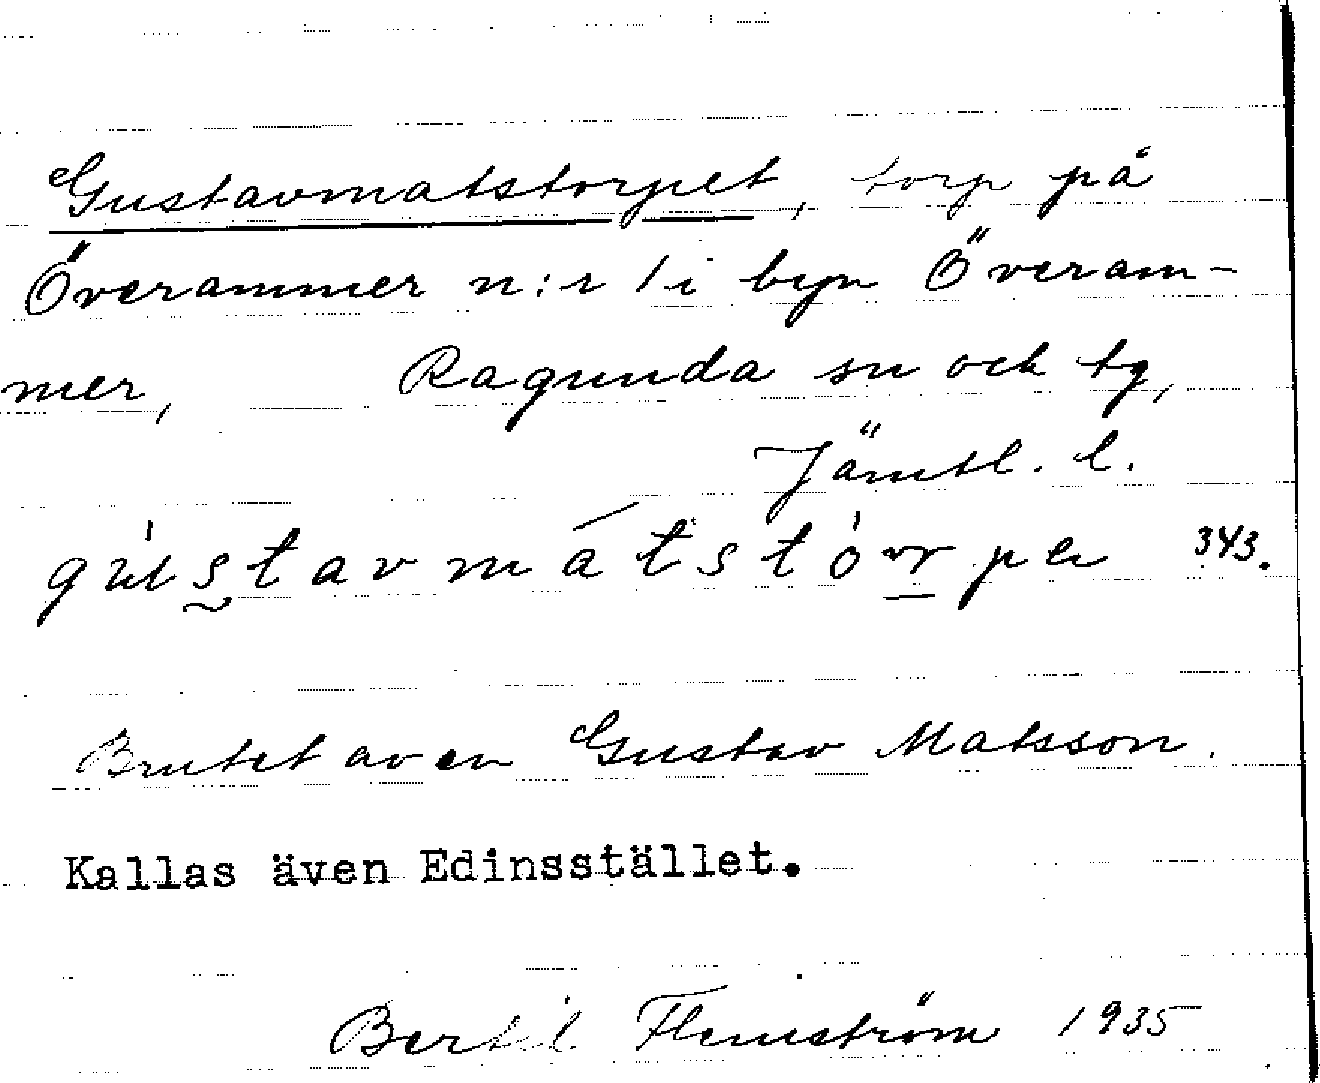 Gustavmatstorpet, torp på
Överammer n:r 1 i byn Överam-
mer, Ragunda sn och tg,
Jämtl. l.
gústavmátstórpe 343.
Brutet av en Gustav Matsson.
Kallas även Edinsstället.
Bertil Flemström 1935